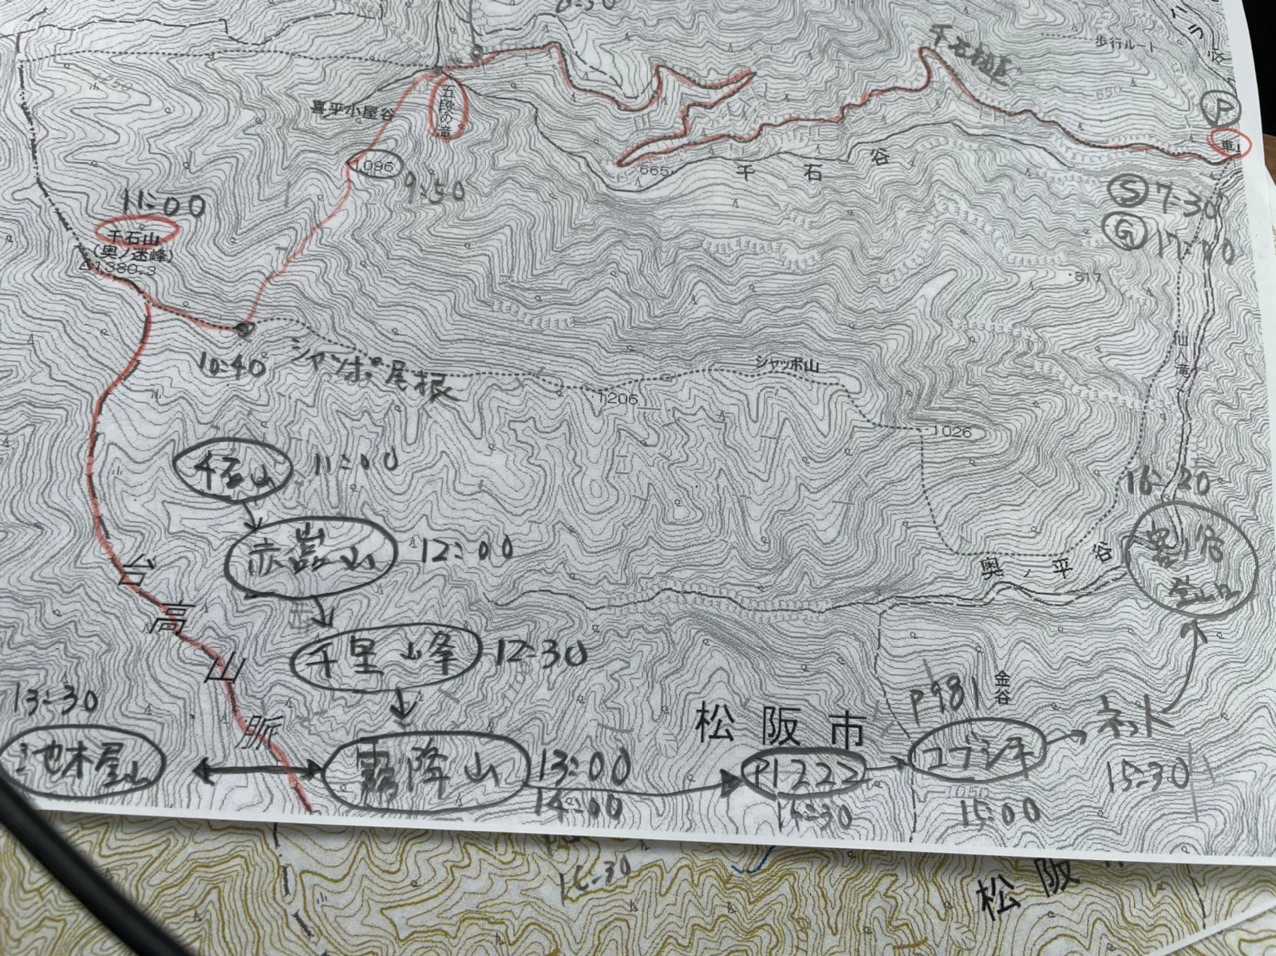 歩行ルート
P
車山
喜平小屋谷
五段の滝
1096
9:50
665
千石谷
S 7:30
G 17:00
11:00
千石山
(奥ノ迷峰)
△1380.3
10:40
シャッポ尾根
1206
シャッポ山
・517
1026
千石山 11:00
赤嵓山 12:00
千里峰 12:30
霧降山 13:00
14:00
13:30
池木屋山
台高山脈
松阪市
P1222
14:30
P981
コブシ平
15:00
ネット
15:30
金谷
奥ノ平谷
16:20
松阪